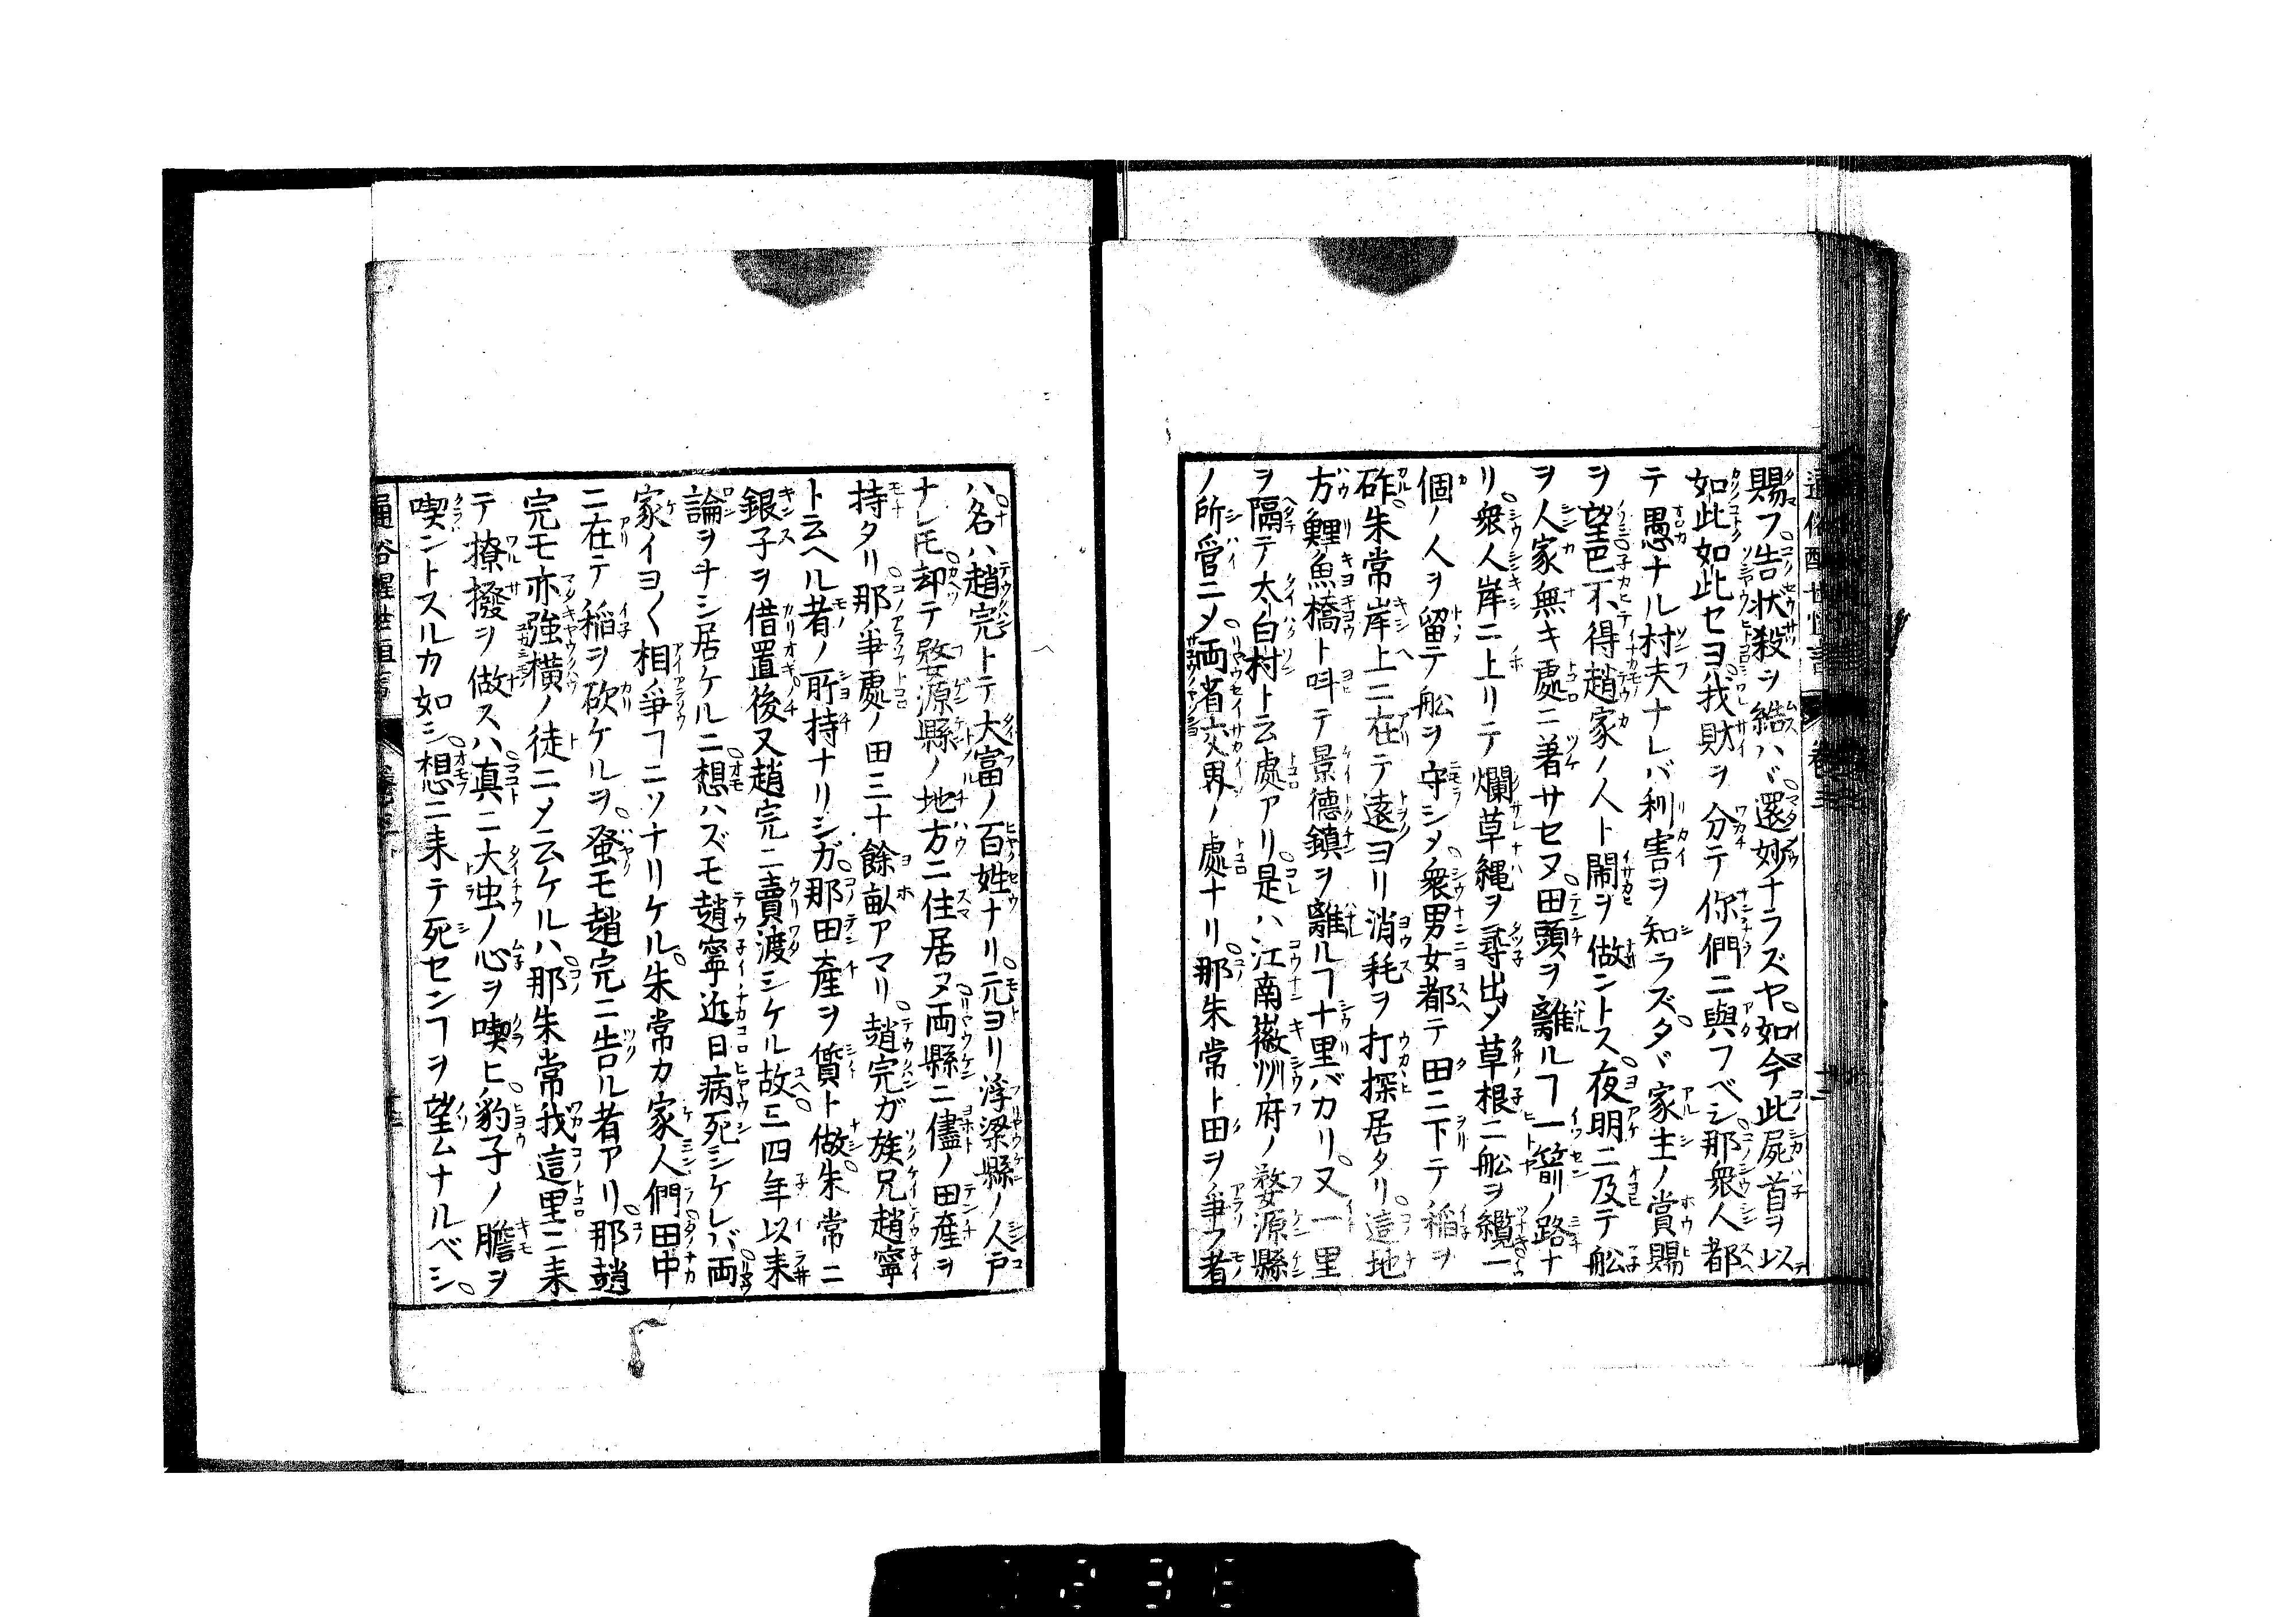 賜フ告状殺ヲ結ハヾ還妙ナラズヤ如今此屍首ヲ以
如此如此セヨ我財ヲ分テ你們ニ與フベシ那衆人都
テ愚ナル村夫ナレバ利害ヲ知ラズタヾ家主ノ賞賜
ヲ望巴不得趙家ノ人ト鬧ヲ做ントス夜明ニ及テ舩
ヲ人家無キ處ニ著サセヌ田頭ヲ離ルヿ一箭ノ路ナ
リ衆人岸ニ上リテ爛草縄ヲ尋出メ草根ニ舩ヲ纜一
個ノ人ヲ留テ舩ヲ守シメ衆男女都テ田ニ下テ稲ヲ
砟朱常岸上ニ在テ遠ヨリ消耗ヲ打探居タリ這地
方鯉魚橋ト呌テ景德鎮ヲ離ルヿ十里バカリ又一里
ヲ隔テ太白村ト云處アリ是ハ江南徽州府ノ婺源縣
ノ所管ニメ両省交界ノ處ナリ那朱常ト田ヲ爭フ者
ハ名ハ趙完トテ大富ノ百姓ナリ元ヨリ浮梁縣ノ人戸
ナレ𪜈却テ婺源縣ノ地方ニ住居ヌ両縣ニ儘ノ田産ヲ
持タリ那爭處ノ田三十餘畝アマリ趙完ガ族兄趙寧
ト云ヘル者ノ所持ナリシガ那田産ヲ質ト做朱常ニ
銀子ヲ借置後又趙完ニ賣渡シケル故三四年以来
論ヲナシ居ケルニ想ハズモ趙寧近日病死シケレバ両
家イヨ〱相爭フニソナリケル朱常カ家人們田中
ニ在テ稲ヲ砍ケルヲ蚤モ趙完ニ告ル者アリ那趙
完モ亦強横ノ徒ニメ云ケルハ那朱常我這里ニ来
テ撩撥ヲ做スハ真ニ大虫ノ心ヲ喫ヒ豹子ノ膽ヲ
喫ントスルカ如シ想ニ来テ死センヿヲ望ムナルベシ